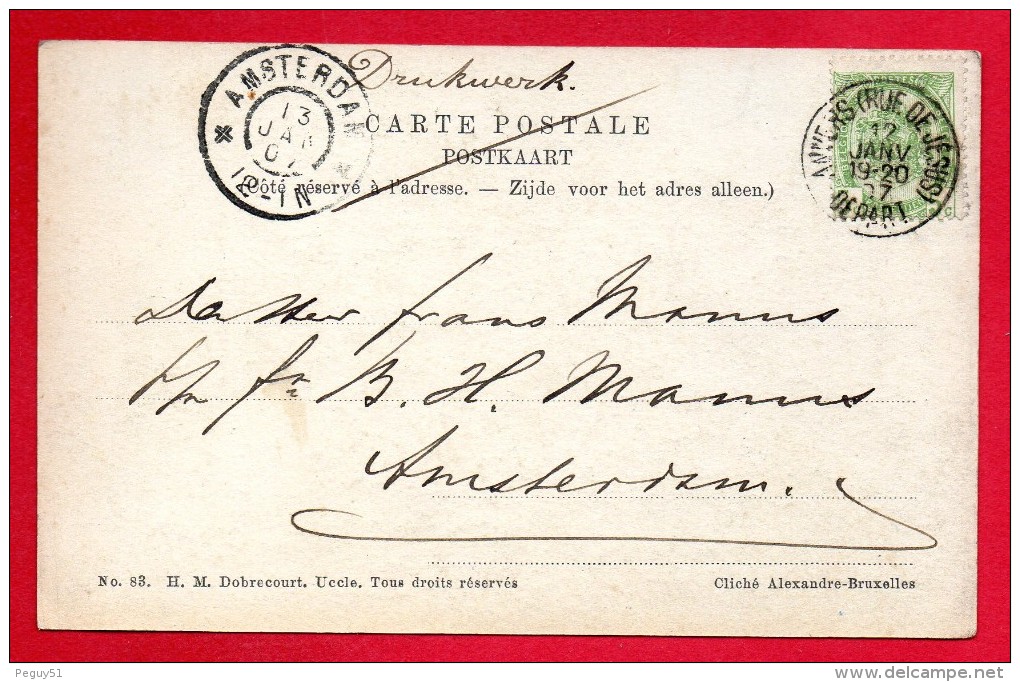 Drukwerk.
AMSTERDAM
13
JAN
07
12-1N
CARTE POSTALE
POSTKAART
(Côté réservé à l'adresse. — Zijde voor het adres alleen.)
ANVERS (RUE DE JÉSUS)
12
JANV
19-20
07
DÉPART
frans Manus
B. H. Manus
Amsterdam.
No. 83. H. M. Dobrecourt. Uccle. Tous droits réservés
Cliché Alexandre-Bruxelles
Peguy51
delcampe.net